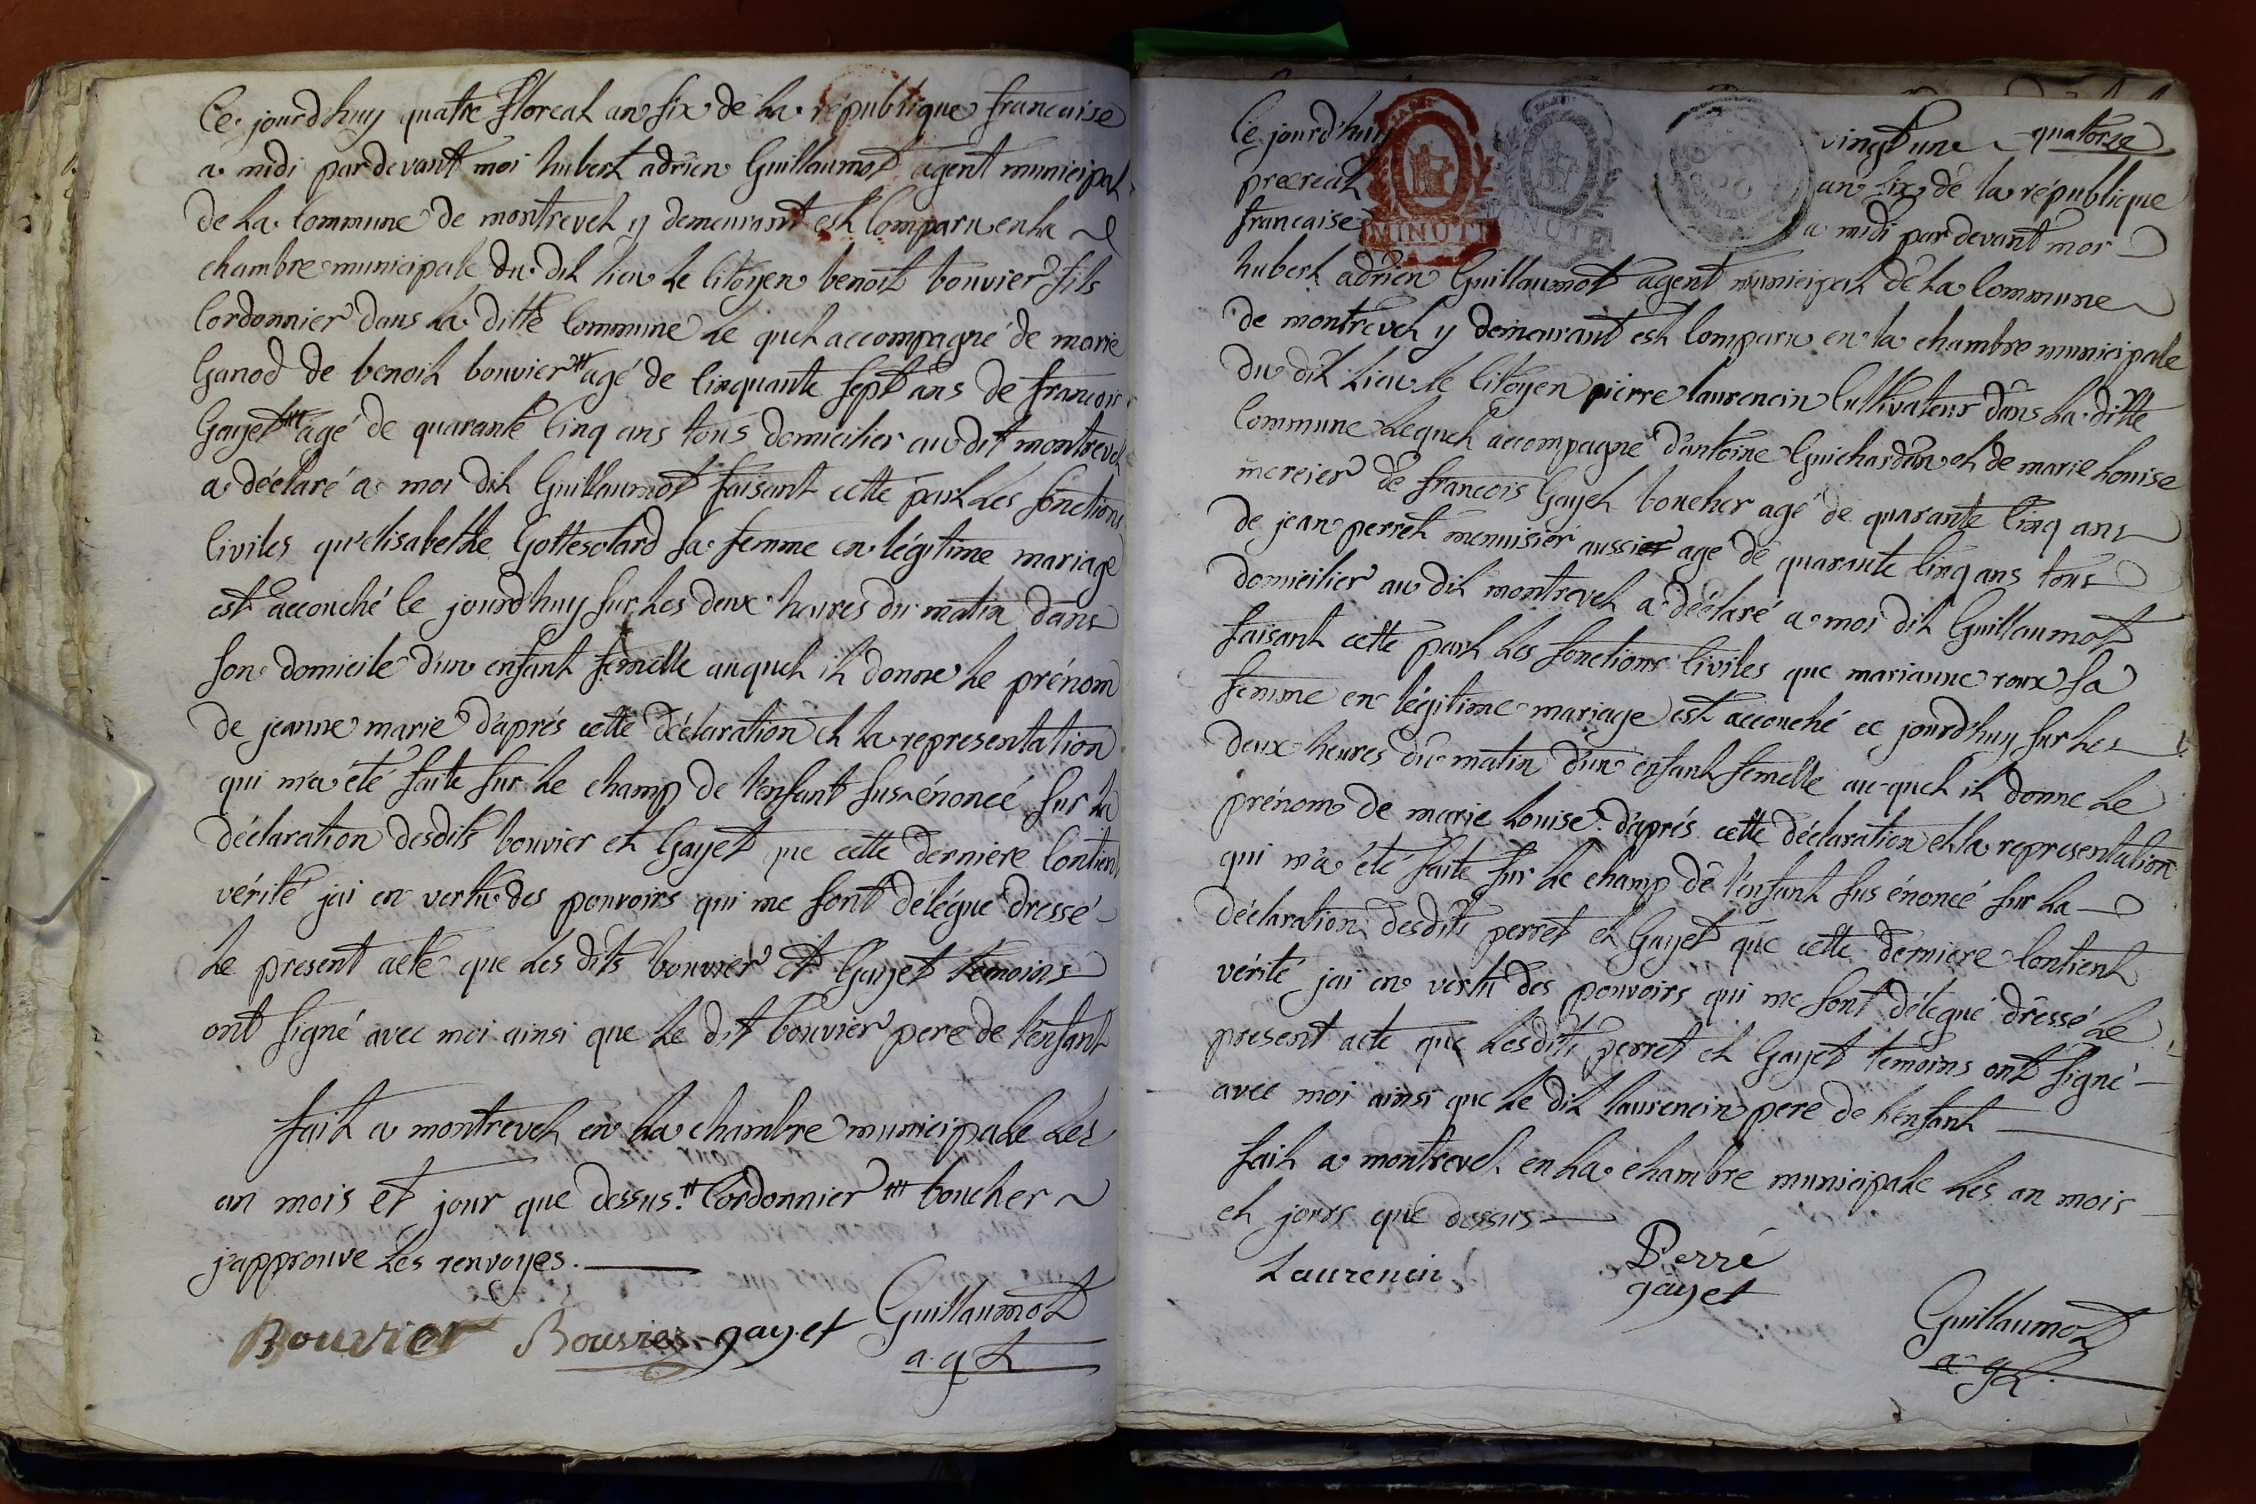 Ce jourd'huy quatre floreal an six de la république francaise
a midi pardevant moi hubert adrien Guillaumot agent municipal
de la commune de montrevel y demeurant est comparu en la
chambre municipale du dit lieu le citoyen benoit bouvier fils
cordonnier dans la ditte commune le quel accompagné de marie
Ganod de benoit bouvier # agé de cinquante sept ans de francois
Gayet ## agé de quarante cinq ans tous domicilier au dit montrevel
a déclaré a moi dit Guillaumot faisant cette part les fonctions
civiles qu'elisabethe Gottesolard sa femme en légitime mariage
est accouché le jourd'huy sur les deux heures du matin dans
son domicile d'un enfant femelle auquel il donne le prénom
de jeanne marie d'aprés cette déclaration et la representation
qui m'a été faite sur le champ de l'enfant sus énoncé sur la
déclaration desdits bouvier et Gayet que cette derniere contient
vérité jai en vertu des pouvoirs qui me sont délégué dressé
le present acte que les dits bouvier et Gayet temoins
ont signé avec moi ainsi que le dit bouvier pere de l'enfant
fait a montrevel en la chambre municipale les
an mois et jour que dessus. # cordonnier ## boucher
j'approuve les renvoyes.
Bouvier Bouvier gayet Guillaumot
a. g t
quatorze
Ce jourd'huy vingt une
preereal an six de la république
francaise a midi pardevant moi
MINUTE MINUTE
hubert adrien Guillaumot agent municipal de la commune
de montrevel y demeurant est comparu en la chambre municipale
du dit lieu le citoyen pierre laurencin cultivateur dans la ditte
commune lequel accompagné d'antoine Guichardan et de marie louise
mercier de francois Gayet boucher agé de quarante cinq ans
de jean perret menuisier aussi agé de quarante cinq ans tous
domicilier au dit montrevel a déclaré a moi dit Guillaumot
faisant cette part les fonctions civiles que marianne roux sa
femme en légitime mariage est accouché ce jourd'huy sur les
deux heures du matin d'un enfant femelle au quel il donne le
prénom de marie louise. d'aprés cette déclaration et la representation
qui m'a été faite sur le champ de l'enfant sus énoncé sur la
déclaration desdits perret et Gayet que cette derniere contient
vérité jai en vertu des pouvoirs qui me sont délegué dressé le
present acte que lesdits perret et Gayet témoins ont signé
avec moi ainsi que le dit laurencin pere de l'enfant
fait a montrevel en la chambre municipale les an mois
et jours que dessus
Laurencin Perré
gayet
Guillaumot
a. g t.